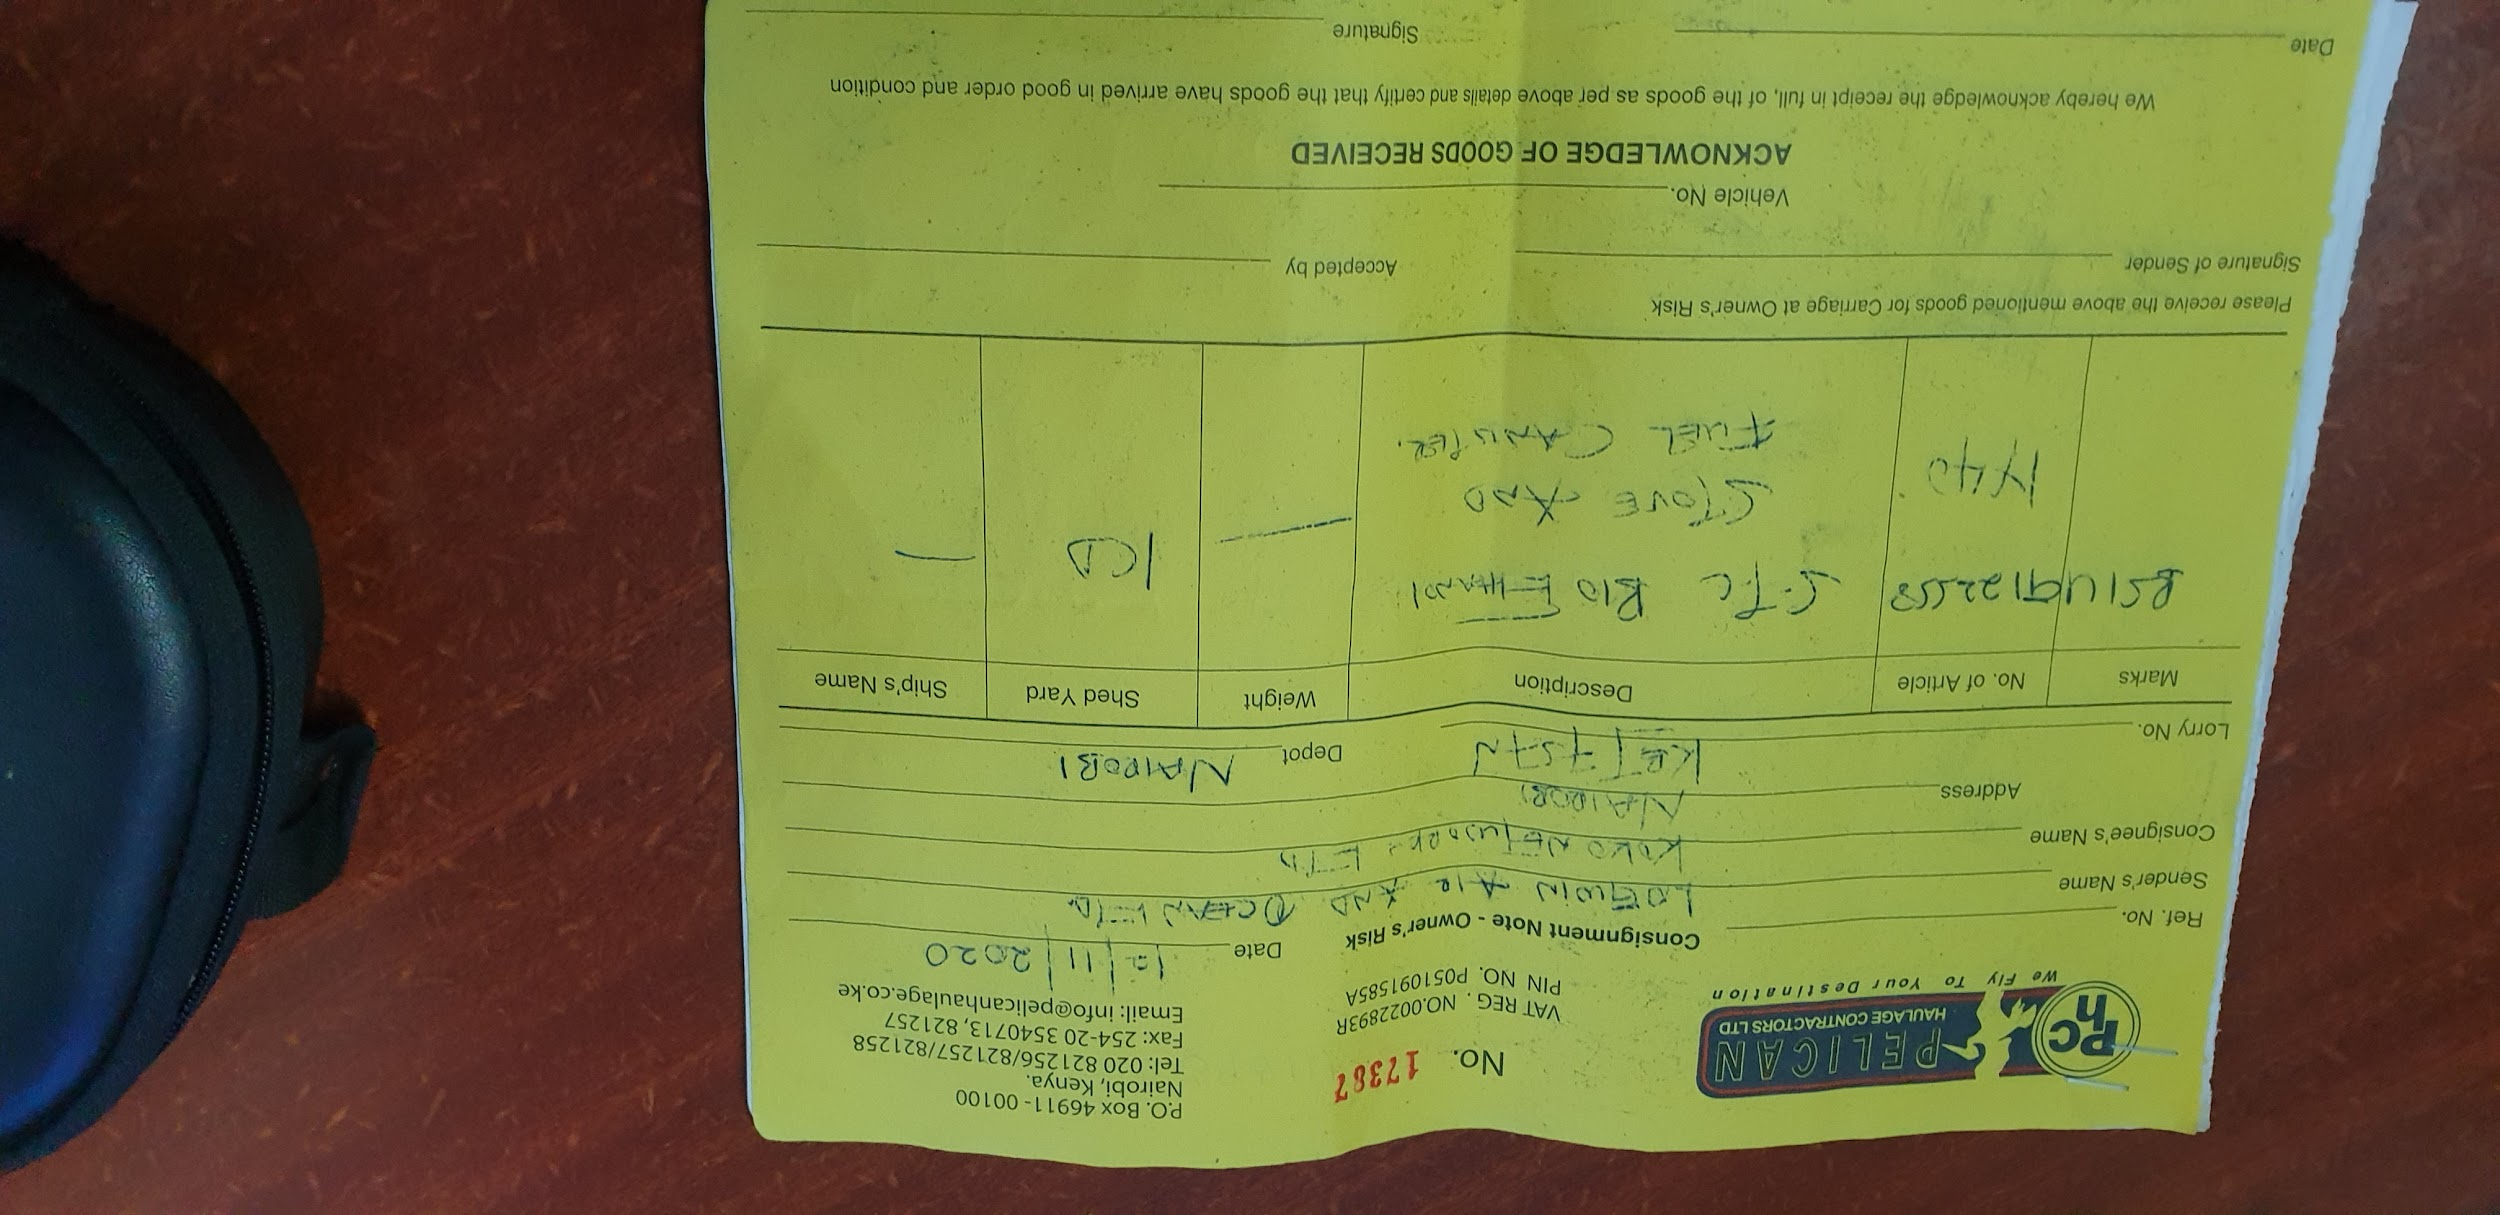 Pch PELICAN
HAULAGE CONTRACTORS LTD
We Fly To Your Destination
No. 17387
VAT REG. NO.0022893R
PIN NO. P051091585A
P.O. Box 46911- 00100
Nairobi, Kenya.
Tel: 020 821256/821257/821258
Fax: 254-20 3540713, 821257
Email: info@pelicanhaulage.co.ke
Consignment Note - Owner's Risk
Date 12/11/2020
Ref. No.
Sender's Name LOGWIN AIR AND OCEAN LTD.
Consignee's Name KOKO NETWORKS LTD
Address NAIROBI
Lorry No. Depot NAIROBI
Marks No. of Article Description Weight Shed Yard Ship's Name
S.T.C BIO ETHANOL ICD
1X40 STOVE AND
FUEL CANISTER.
Please receive the above mentioned goods for Carriage at Owner's Risk
Signature of Sender Accepted by
Vehicle No.
ACKNOWLEDGE OF GOODS RECEIVED
We hereby acknowledge the receipt in full, of the goods as per above details and certify that the goods have arrived in good order and condition
Date Signature